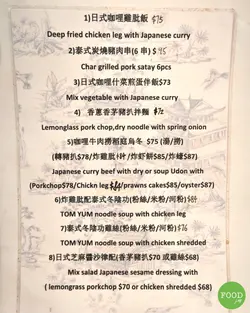 1)日式咖哩雞肶飯
Deep fried chicken leg with Japanese curry
2)泰式炭燒豬肉串(6 串)
Char grilled pork satay 6pcs
3)日式咖哩什菜煎蛋伴飯$73
Mix vegetable with Japanese curry
4) 香蔥香茅豬扒拌麵
Lemonglass pork chop,dry noodle with spring onion
5)咖哩牛肉撈稻庭烏冬 $75 (湯/撈)
(轉豬扒$78/炸雞肶 /炸虾餅$85/炸蠔$87)
Japanese curry beef with dry or soup Udon with
(Porkchop$78/Chickn leg /prawns cakes$85/oyster$87)
6)炸雞肶配泰式冬陰功(粉絲/米粉/河粉)
TOM YUM noodle soup with chicken leg
7)泰式冬陰功雞絲(粉絲/米粉/河粉)
TOM YUM noodle soup with chicken shredded
8)日式芝麻醬沙律配(香茅豬扒$70 或雞絲$68)
Mix salad Japanese sesame dressing with
( lemongrass porkchop $70 or chicken shredded $68)
FOOD